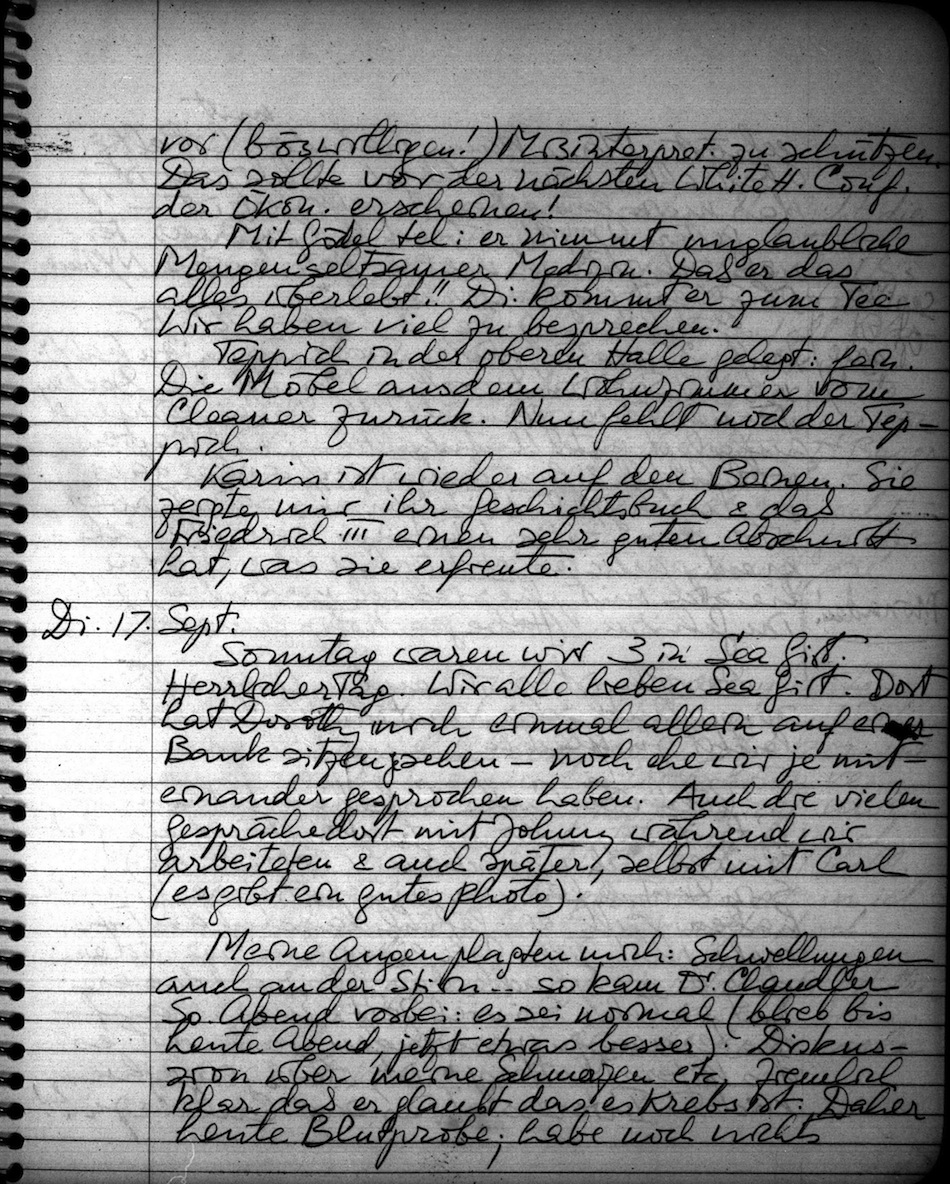 vor (böswilligen!) Misinterpret. zu schützen.
Das sollte vor der nächsten White H. Conf.
der Ökon. erscheinen!
Mit Gödel tel: er nimmt unglaubliche
Mengen seltsamer Medizin. Das er das
alles überlebt!! Di. kommt er zum Tee
Wir haben viel zu besprechen.
Teppich in der oberen Halle gelegt: fein.
Die Möbel aus dem Wohnzimmer vom
Cleaner zurück. Nun fehlt noch der Tep-
pich.
Karin ist wieder auf den Beinen. Sie
zeigte mir ihr Geschichtsbuch & das
Friedrich III einen sehr guten Abschnitt
hat, was sie erfreute.
Di. 17. Sept.
Sonntag waren wir 3 in Sea Girt.
Herrlicher Tag. Wir alle lieben Sea Girt. Dort
hat Doroth mich einmal allein auf einer
Bank sitzen gsehen – noch ehe wir je mit-
einander gesprochen haben. Auch die vielen
Gespräche dort mit Johnny während wir
arbeiteten & auch später, selbst mit Carl
(es gibt ein gutes Photo).
Meine Augen plagten mich: Schwellungen
auch an der Stirn.. so kam Dr. Chandler
So. Abend vorbei: es sei normal (blieb bis
heute Abend, jetzt etwas besser). Diskus-
sion über meine Schmerzen etc. Ziemlich
klar das er glaubt das es Krebs ist. Daher
heute Blutprobe; habe noch nichts